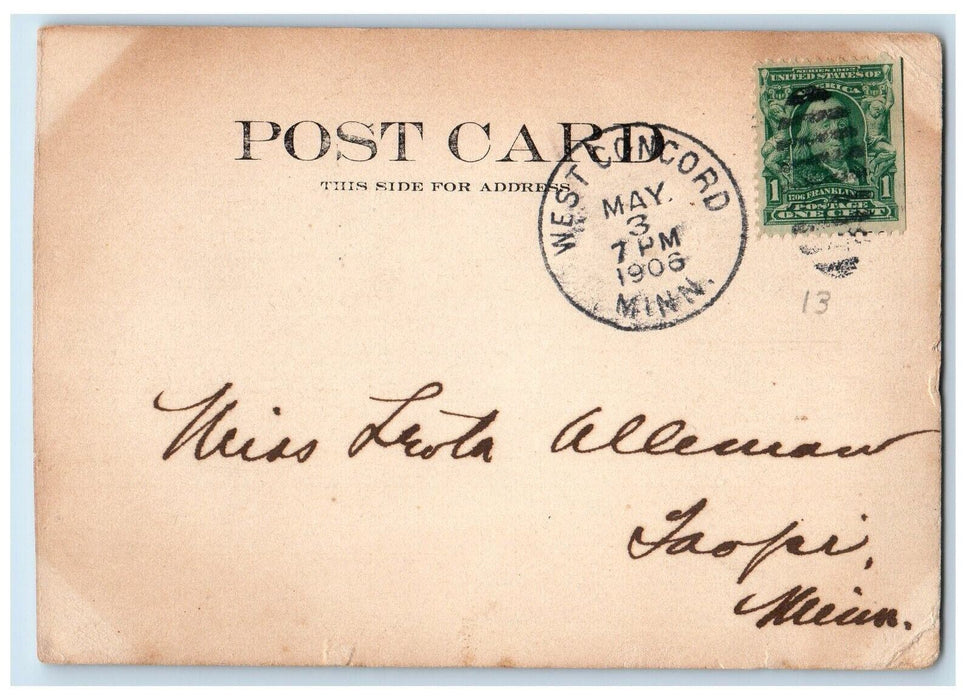 POST CARD
THIS SIDE FOR ADDRESS
WEST CONCORD
MAY.
3
7 PM
1906
MINN.
SERIES 1902
UNITED STATES OF
AMERICA
1 1706 FRANKLIN 1
POSTAGE
ONE CENT
13
Miss Leota Alleman
Taopi,
Minn.